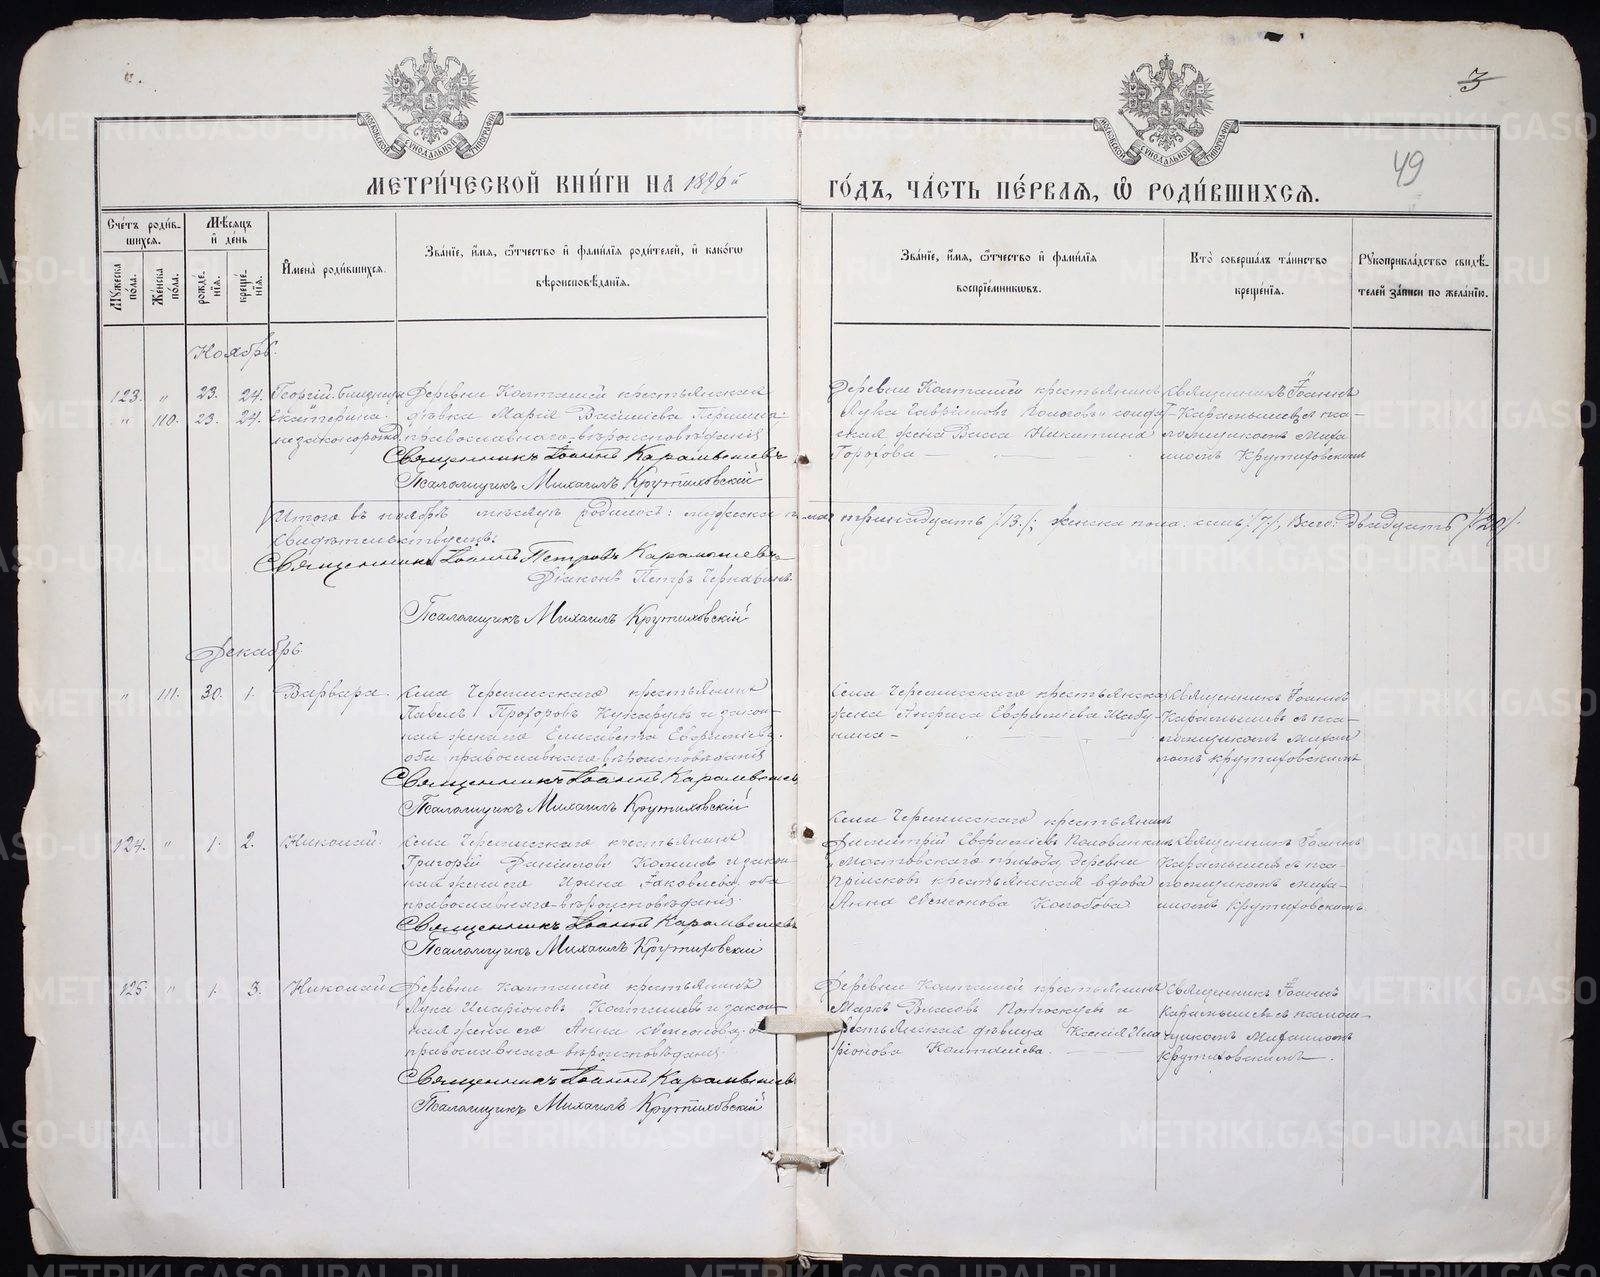 3
49
МОСКОВСКОЙ СѴНОДАЛЬНОЙ ТИПОГРАФІИ
МОСКОВСКОЙ СѴНОДАЛЬНОЙ ТИПОГРАФІИ
МЕТРИ́ЧЕСКОЙ КНИ́ГИ НА 1896й
ГО́ДЪ, ЧА́СТЬ ПЕ́РВАѦ, Ѡ҆ РОДИ́ВШИХСѦ.
Сче́тъ роди́в-
шихсѧ.
Мѣ́сѧцъ
и҆ де́нь
Мꙋ́жеска по́ла.
Же́нска по́ла.
рожде́-
нїѧ.
креще́-
нїѧ.
И҆мена̀ роди́вшихсѧ.
Зва́нїе, и҆́мѧ, ѻ҆́тчество и҆ фамѝлїѧ роди́телей, и҆ како́гѡ
вѣроисповѣ́данїѧ.
Зва́нїе, и҆́мѧ, ѻ҆́тчество и҆ фами́лїѧ
воспрїе́мникѡвъ.
Кто̀ соверша́лъ та́инство
креще́нїѧ.
Рꙋкоприкла́дство свидѣ́-
телей за́писи по жела́нїю.
Ноябрь.
123. " 23. 24. Георгій. близнецы Деревни Колташей крестьянская
" 110. 23. 24. Екатерина. дѣвка Марія Васильева Першина.
незаконорожд. православнаго вѣроисповѣданія
Священникъ Іоаннъ Карамышевъ
Псаломщикъ Михаилъ Крутиховскій
Деревни Колташей крестьянинъ
Лука Гавріиловъ и солдат-
ская жена Васса Никитина
Горохова
Священникъ Іоаннъ
Карамышевъ съ пса-
ломщикомъ Миха
иломъ Крутиховскимъ
Итого въ ноябрѣ мѣсяцѣ родилось: мужеска пола тринадцать /13/; женска пола: семь /7/, Всего: Двадцать /20/.
Свидѣтельствуютъ:
Священникъ Іоаннъ Петровъ Карамышевъ
Діаконъ Петръ Чернавинъ
Псаломщикъ Михаилъ Крутиховскій
Декабрь.
" 111. 30. 1. Варвара. Села Черемисскаго крестьянинъ
Павелъ Прохоровъ и закон-
ная жена его Елисавета Евфиміева.
оба православнаго вѣроисповѣданія
Священникъ Іоаннъ Карамышевъ
Псаломщикъ Михаилъ Крутиховскій
Села Черемисскаго крестьянская
жена Анфиса Евфиміева Шабу-
нина
Священникъ Іоаннъ
Карамышевъ съ пса-
ломщикомъ Михаи
ломъ Крутиховскимъ
124. " 1. 2. Николай. Села Черемисскаго крестьянинъ
Григорій Даніиловъ и закон
ная жена его Ирина Іаковлева. оба
православнаго вѣроисповѣданія.
Священникъ Іоаннъ Карамышевъ
Псаломщикъ Михаилъ Крутиховскій
Села Черемисскаго крестьянинъ
Димитрій Евфиміевъ Половинкинъ
Мостовскаго прихода, деревни
Пріисковъ крестьянская вдова
Анна Семенова Колобова
Священникъ Іоаннъ
Карамышевъ съ пса-
ломщикомъ Миха-
иломъ Крутиховскимъ
125. " 1. 3. Николай Деревни Колташей крестьянинъ
Лука Иларіоновъ Колташевъ и закон-
ная жена его Анна Семенова, оба
православнаго вѣроисповѣданія.
Священникъ Іоаннъ Карамышевъ
Псаломщикъ Михаилъ Крутиховскій
Деревни Колташей крестьянинъ
Маркъ Власовъ Потоскуевъ и
крестьянская дѣвица Ксенія Ила
ріонова Колташева.
Священникъ Іоаннъ
Карамышевъ съ псалом-
щикомъ Михаиломъ
Крутиховскимъ.
METRIKI.GASO-URAL.RU